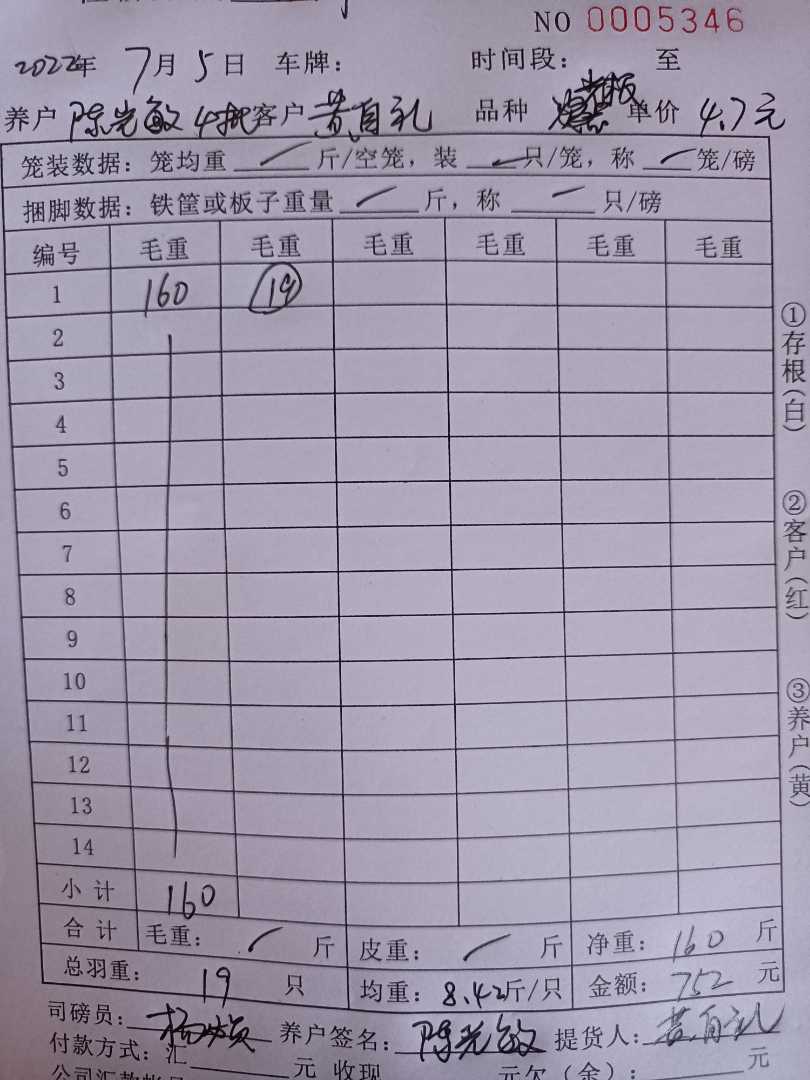 NO 0005346
2022年 7月 5日 车牌： 时间段： 至
养户 陈光敏 4批 客户 黄自礼 品种 光板 单价 4.7元
笼装数据：笼均重 斤/空笼，装 只/笼，称 笼/磅
捆脚数据：铁筐或板子重量 斤，称 只/磅
编号 毛重 毛重 毛重 毛重 毛重 毛重
1 160 19
2
3
4
5
6
7
8
9
10
11
12
13
14
小计 160
合计 毛重： 斤 皮重： 斤 净重：160 斤
总羽重： 19 只 均重：8.42斤/只 金额：752 元
司磅员： 养户签名：陈光敏 提货人：黄自礼
付款方式：汇 元 收现 元欠（余）： 元
①存根（白）
②客户（红）
③养户（黄）